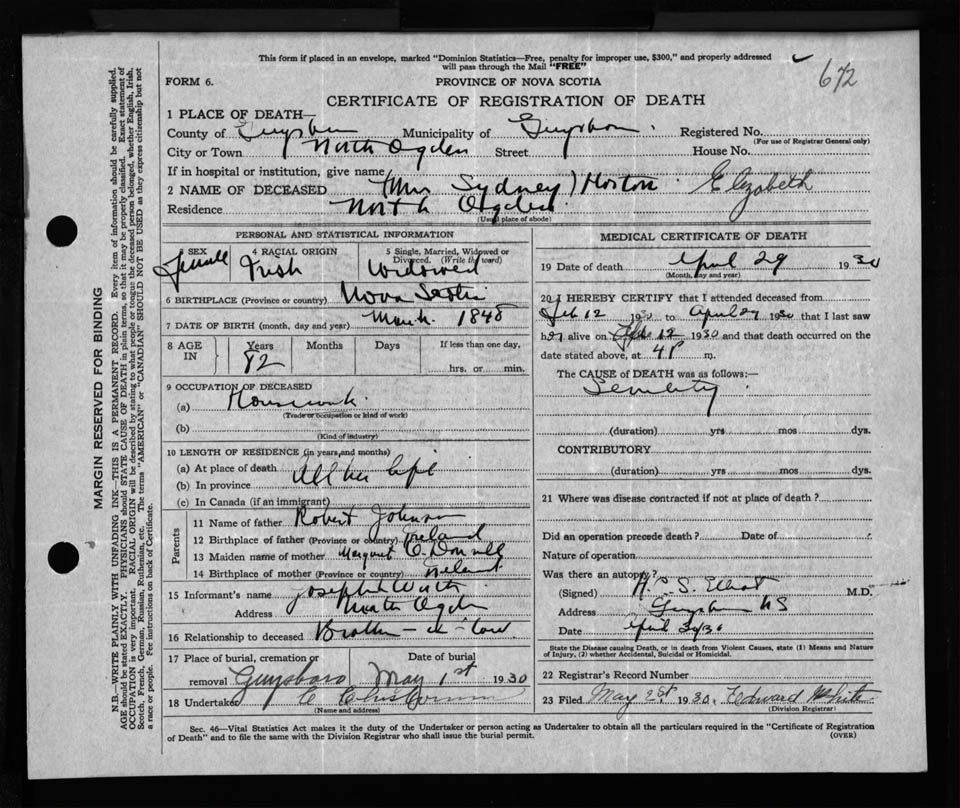 This form if placed in an envelope, marked "Dominion Statistics—Free, penalty for improper use, $300," and properly addressed
will pass through the Mail "FREE"
672
FORM 6. PROVINCE OF NOVA SCOTIA
CERTIFICATE OF REGISTRATION OF DEATH
1 PLACE OF DEATH—
County of Municipality of Registered No.
(For use of Registrar General only)
City or Town North Ogden Street House No.
If in hospital or institution, give name
2 NAME OF DECEASED (Mrs Sydney) Horton Elizabeth
Residence North Ogden
(Usual place of abode)
PERSONAL AND STATISTICAL INFORMATION
3 SEX 4 RACIAL ORIGIN 5 Single, Married, Widowed or Divorced. (Write the word)
Female Irish Widowed
6 BIRTHPLACE (Province or country) Nova Scotia
7 DATE OF BIRTH (month, day and year) March 1848
8 AGE IN Years Months Days If less than one day,
82 hrs. or min.
9 OCCUPATION OF DECEASED
(a) Housework
(Trade or occupation or kind of work)
(b)
(Kind of industry)
10 LENGTH OF RESIDENCE (in years and months)
(a) At place of death All her life
(b) In province
(c) In Canada (if an immigrant)
Parents
11 Name of father Robert Johnson
12 Birthplace of father (Province or country) Ireland
13 Maiden name of mother Margaret O'Donnell
14 Birthplace of mother (Province or country) Ireland
15 Informant's name Joseph
Address North Ogden
16 Relationship to deceased Brother-in-law
17 Place of burial, cremation or Date of burial
removal Guysboro May 1st 1930
18 Undertaker
(Name and address)
MEDICAL CERTIFICATE OF DEATH
19 Date of death April 29 1930
(Month, day and year)
20 I HEREBY CERTIFY that I attended deceased from
Feb 12 1930 to April 29 1930 that I last saw
her alive on 12 1930 and that death occurred on the
date stated above, at 4 P m.
The CAUSE of DEATH was as follows:—
Senility
(duration) yrs mos dys.
CONTRIBUTORY
(duration) yrs mos dys.
21 Where was disease contracted if not at place of death?
Did an operation precede death? Date of
Nature of operation
Was there an autopsy?
(Signed) S. Elliot M.D.
Address NS
Date April
State the Disease causing Death, or in death from Violent Causes, state (1) Means and Nature
of Injury, (2) whether Accidental, Suicidal or Homicidal.
22 Registrar's Record Number
23 Filed May 2st 1930 Edward White
(Division Registrar)
Sec. 46—Vital Statistics Act makes it the duty of the Undertaker or person acting as Undertaker to obtain all the particulars required in the "Certificate of Registration
of Death" and to file the same with the Division Registrar who shall issue the burial permit. (OVER)
MARGIN RESERVED FOR BINDING
N.B.—WRITE PLAINLY WITH UNFADING INK—THIS IS A PERMANENT RECORD. Every item of information should be carefully supplied.
AGE should be stated EXACTLY. PHYSICIANS should STATE CAUSE OF DEATH in plain terms, so that it may be properly classified. Exact statement of
OCCUPATION is very important. RACIAL ORIGIN will be described by stating to what people or tongue the deceased person belonged, whether English, Irish,
Scotch, French, German, Russian, Ruthenian, etc. The terms "AMERICAN" or "CANADIAN" SHOULD NOT BE USED as they express citizenship but not
a race or people. See instructions on back of Certificate.